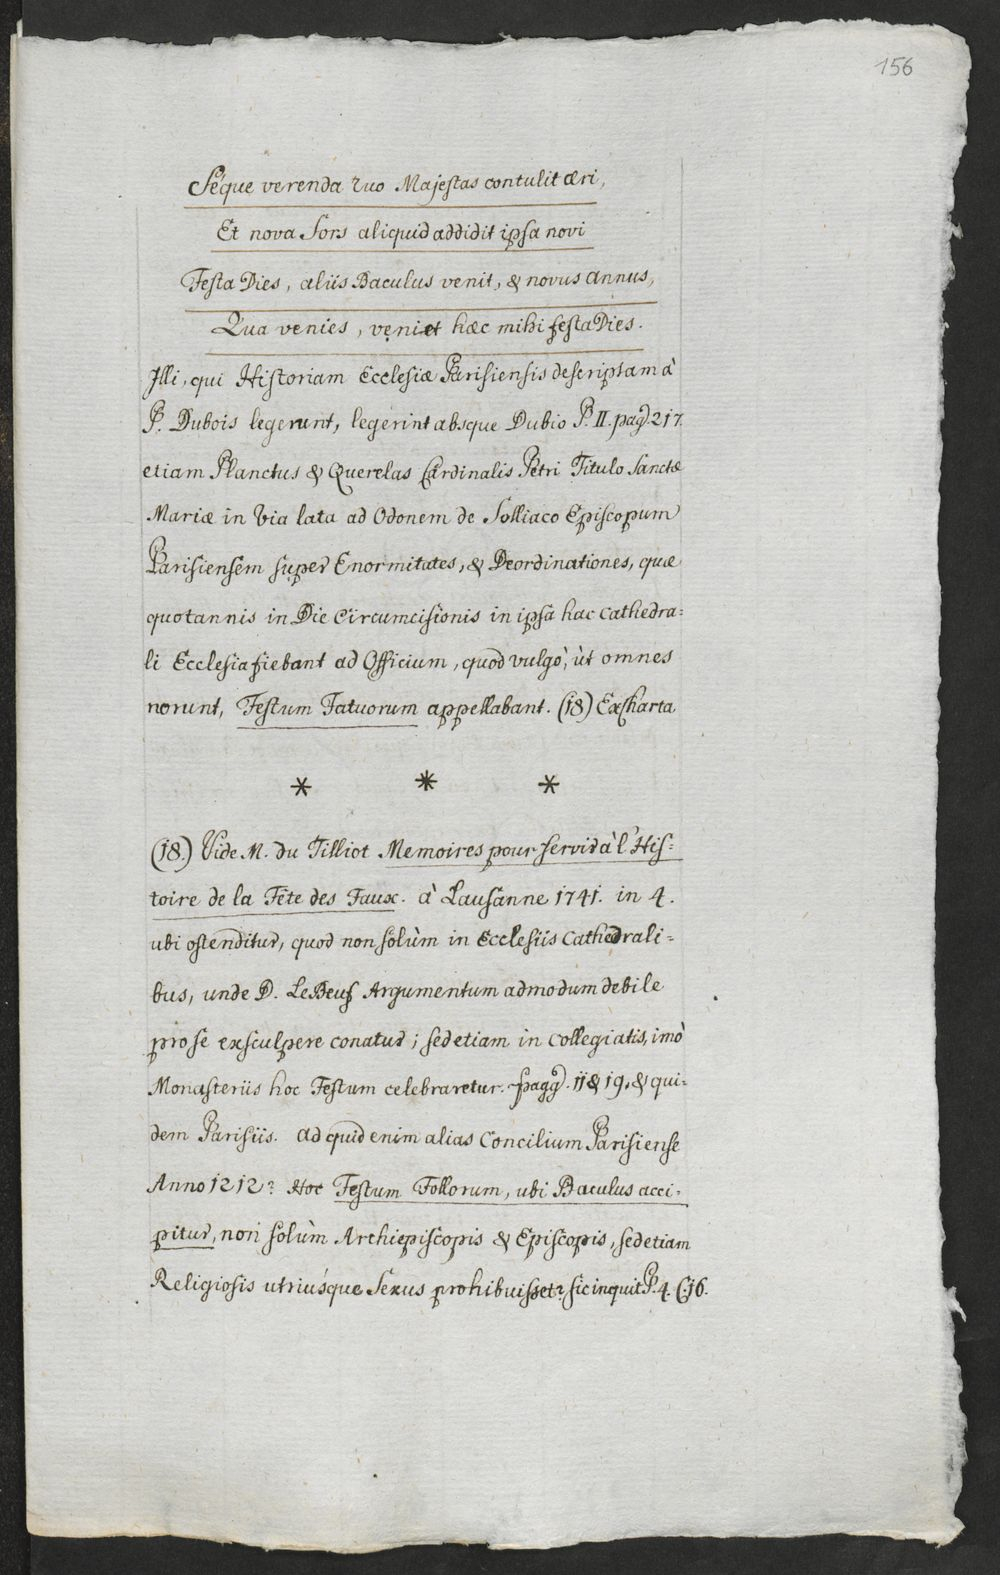 156
Séque verenda suo Majestas contulit æri,
Et nova Sors aliquid addidit ipsa novi
Festa Dies, aliis Baculus venit, & novus annus,
Qua venies, veniet hæc mihi festa Dies.
Illi, qui Historiam Ecclesiæ Parisiensis descriptam à
P. Dubois legerunt, legerint absque Dubio P. II. pag. 217.
etiam Planctus & Querelas Cardinalis Petri Titulo Sanctæ
Mariæ in Via lata ad Odonem de Solliaco Episcopum
Parisiensem super Enormitates, & Deordinationes, quæ
quotannis in Die Circumcisionis in ipsa hac Cathedra=
li Ecclesia fiebant ad Officium, quod vulgò, ùt omnes
norunt, Festum Fatuorum appellabant. (18) Ex Charta
* * *
(18.) Vide M. du Tilliot Memoires pour servir à l'His=
toire de la Fête des Faux. à Lausanne 1741. in 4.
ubi ostenditur, quod non solùm in Ecclesiis Cathedrali=
bus, unde D. Le Beuf Argumentum admodum debile
pro se exsculpere conatur; sed etiam in Collegiatis, imò
Monasteriis hoc Festum celebraretur. pagg. 11 & 19. & qui=
dem Parisiis. ad quid enim alias Concilium Parisiense
Anno 1212? Hoc Festum Follorum, ubi Baculus acci=
pitur, non solùm Archiepiscopis & Episcopis, sed etiam
Religiosis utriúsque Sexus prohibuisset? sic inquit P. 4. C. 16.